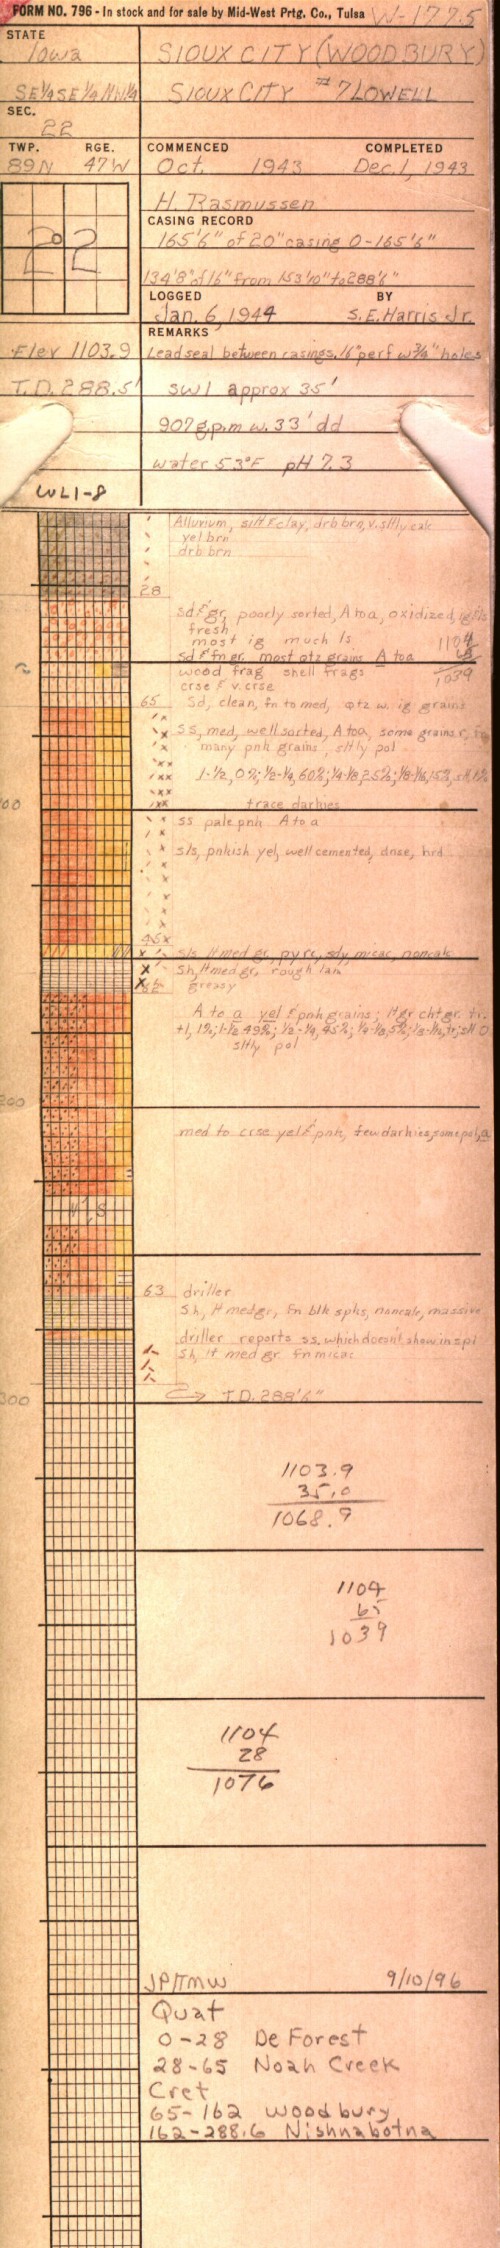 FORM NO. 796 - In stock and for sale by Mid-West Prtg. Co., Tulsa W-1775
STATE
Iowa
SIOUX CITY (WOODBURY)
SE¼ SE¼ NW¼
SIOUX CITY #7 LOWELL
SEC.
22
TWP. RGE.
89N 47W
COMMENCED COMPLETED
Oct. 1943 Dec. 1, 1943
H. Rasmussen
CASING RECORD
165'6" of 20" casing 0-165'6"
134'8" of 16" from 153'10" to 288'6"
LOGGED BY
Jan. 6, 1944 S.E. Harris Jr.
REMARKS
Elev 1103.9
Lead seal between casings. 16" perf w ¾" holes
T.D. 288.5'
swl approx 35'
907 g.p.m w. 33' dd
water 53°F pH 7.3
WL1-8
22
Alluvium, silt & clay, drb brn, v. sltly calc
yel brn
drb brn
28
sd & gr, poorly sorted, A to a, oxidized, ig & ls
fresh
most ig much ls
sd & fn gr, most qtz grains A to a
1104
65
1039
wood frag shell frags
crse & v. crse
65 Sd, clean, fn to med, qtz w. ig grains
ss, med, well sorted, A to a, some grains r, fn
many pnk grains, sltly pol
1-½, 0%; ½-¼, 60%; ¼-⅛, 25%; ⅛-1/16, 15%,
100
trace darkies
ss pale pnk A to a
sls, pnkish yel, well cemented, dnse, hrd
45
sls lt med gr, pyrc, sdy, micac, noncalc
Sh, lt med gr, rough lam
62 greasy
A to a yel & pnk grains; lt gr cht gr. tr.
+1, 1%; 1-½ 49%; ½-¼, 45%; ¼-⅛, 5%; ⅛-1/16, tr; slt 0
sltly pol
200
med to crse yel & pnk, few darkies, some pol, a
N S
63 driller
Sh, lt med gr, fn blk spks, noncalc, massive
driller reports ss, which doesn't show in spl
Sh, lt med gr fn micac
300
T.D. 288'6"
1103.9
35.0
1068.9
1104
65
1039
1104
28
1076
JP/TMW 9/10/96
Quat
0-28 De Forest
28-65 Noah Creek
Cret
65-162 Woodbury
162-288.6 Nishnabotna